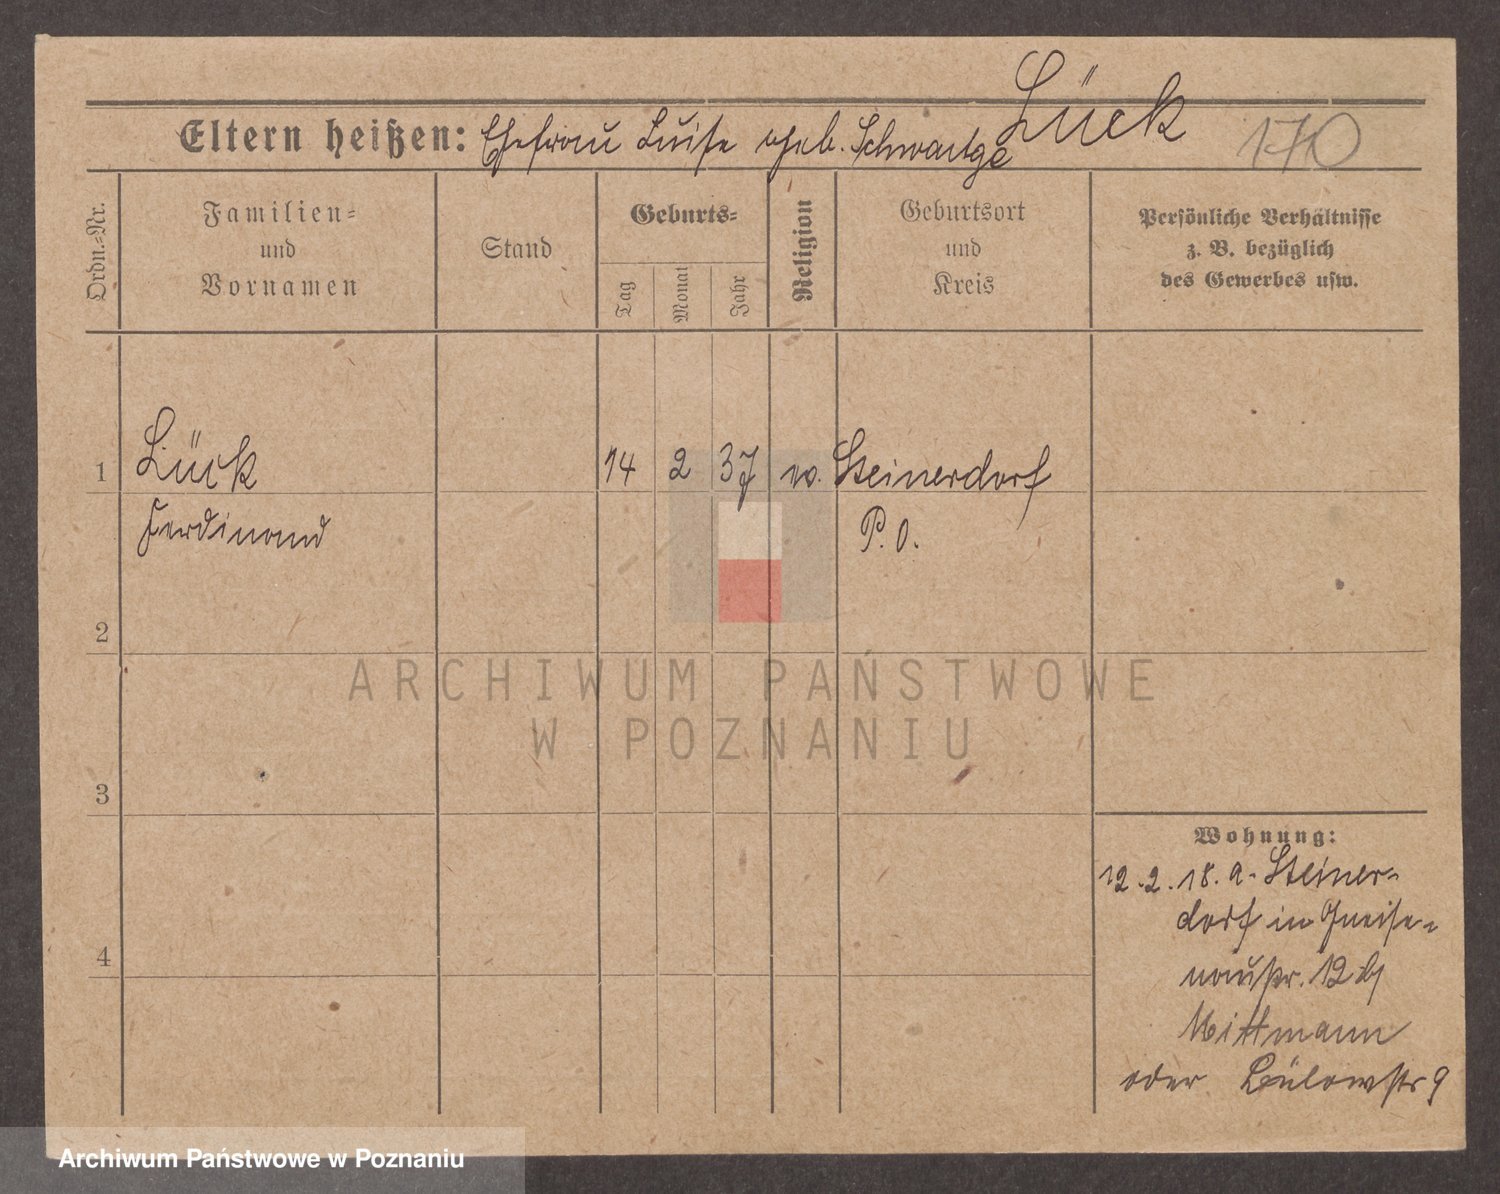 Lück
Eltern heißen: Ehefrau Luise geb. Schwartze 170
Ordn.=Nr.
Familien=
und
Vornamen
Stand
Geburts=
Tag
Monat
Jahr
Religion
Geburtsort
und
Kreis
Persönliche Verhältnisse
z. B. bezüglich
des Gewerbes usw.
1 Lück 14 2 37 Steinerdorf
Ferdinand P. O.
2
ARCHIWUM PAŃSTWOWE
W POZNANIU
3
Wohnung:
12.2.18. a. Steiner=
dorf in Gneise=
naustr. 12 b/
Mittmann
oder Bülowstr 9
4
Archiwum Państwowe w Poznaniu